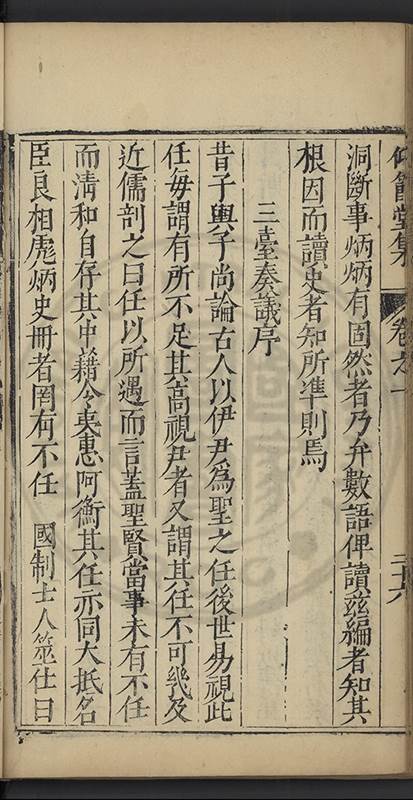 仰節堂集
卷之一
二十六
洞斷事炳炳有固然者乃弁數語俾讀茲編者知其
根因而讀史者知所準則焉
三臺奏議序
昔子輿子尚論古人以伊尹為聖之任後世易視此
任每謂有所不足其高視尹者又謂其任不可幾及
近儒剖之曰任以所遇而言蓋聖賢當事未有不任
而清和自存其中藉令夷惠阿衡其任亦同大抵名
臣良相彪炳史冊者罔有不任 國制士人筮仕曰